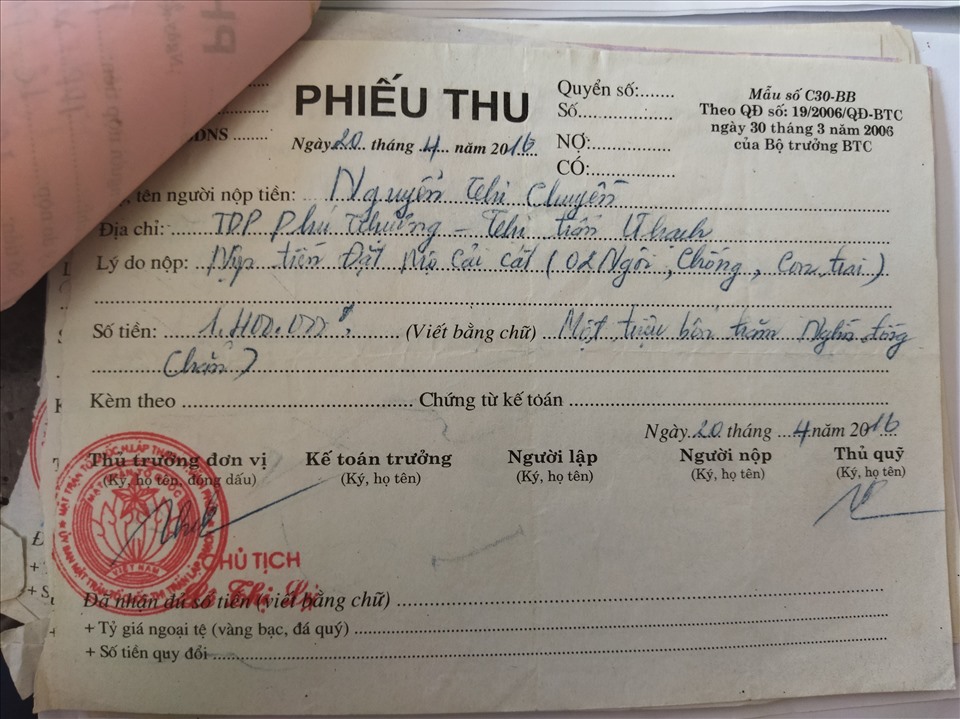 PHIẾU THU
Quyển số:.......
Số...................
NỢ:................
CÓ:................
Mẫu số C30-BB
Theo QĐ số: 19/2006/QĐ-BTC
ngày 30 tháng 3 năm 2006
của Bộ trưởng BTC
Ngày 20 tháng 4 năm 2016
tên người nộp tiền: Nguyễn Thị Chuyên
Địa chỉ: TDP Phú Thường - Thị trấn
Lý do nộp: Nộp tiền Đặt mộ cải cát (02 Người, Chồng, Con trai)
Số tiền: 1.400.000đ (Viết bằng chữ) Một triệu bốn trăm Nghìn đồng
Chẵn)
Kèm theo ............ Chứng từ kế toán ............
Ngày 20 tháng 4 năm 2016
Thủ trưởng đơn vị
(Ký, họ tên, đóng dấu)
Kế toán trưởng
(Ký, họ tên)
Người lập
(Ký, họ tên)
Người nộp
(Ký, họ tên)
Thủ quỹ
(Ký, họ tên)
VIỆT NAM
CHỦ TỊCH
Đã nhận đủ số tiền (viết bằng chữ) ............
+ Tỷ giá ngoại tệ (vàng bạc, đá quý) ............
+ Số tiền quy đổi ............